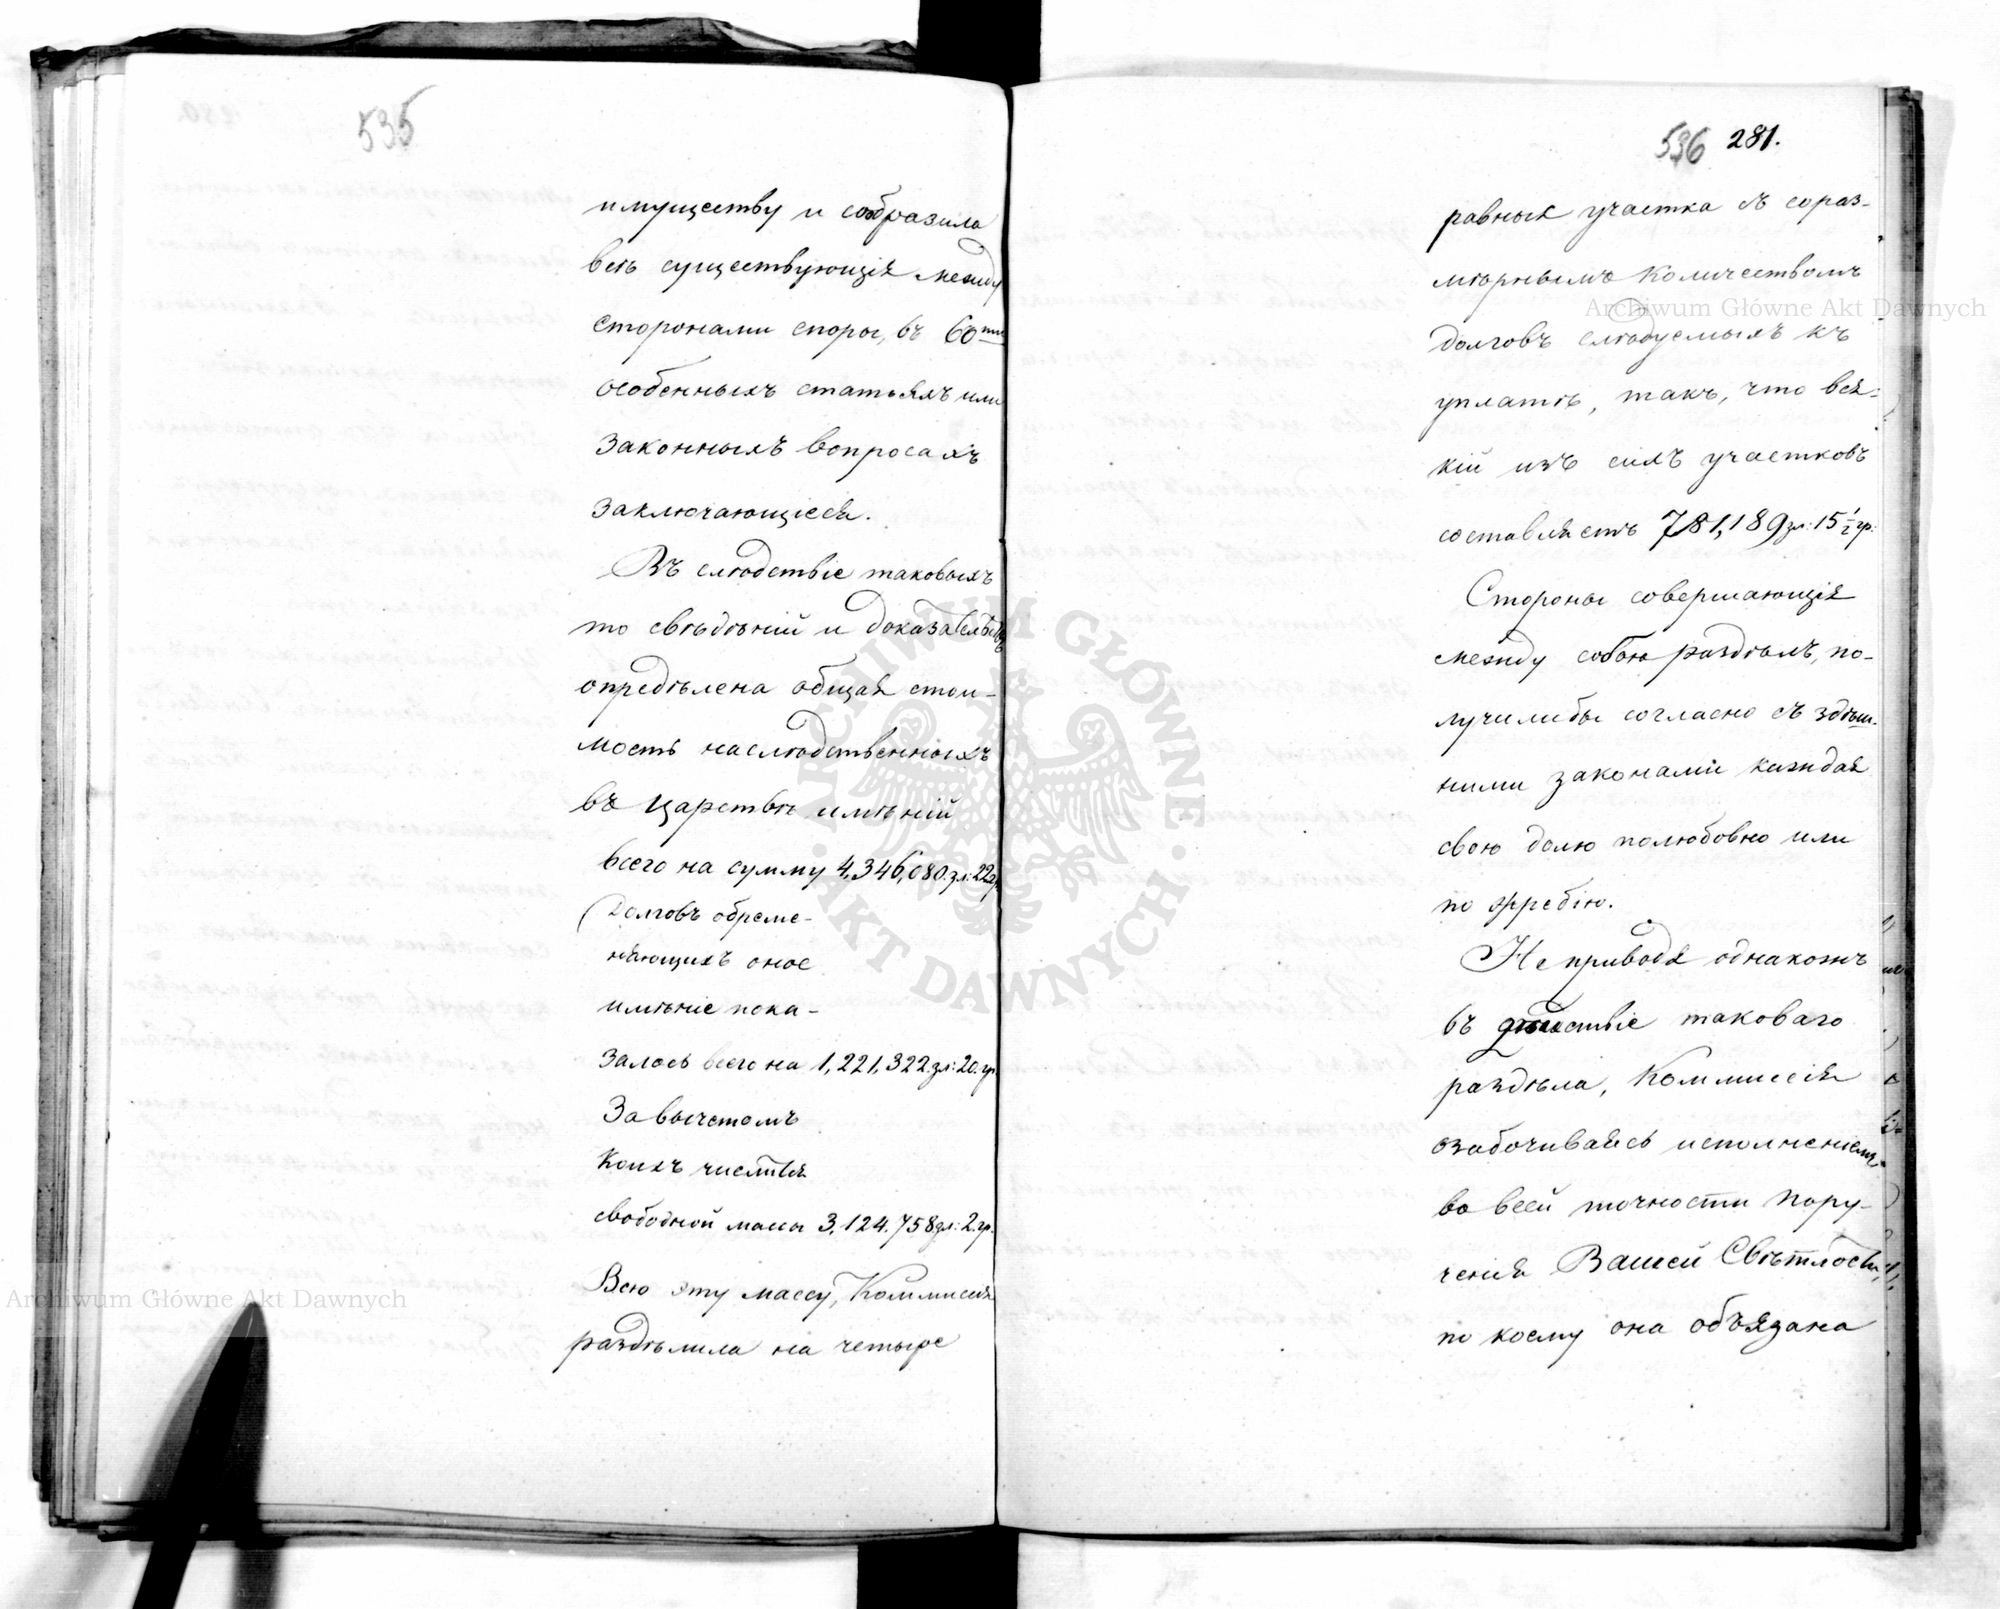 535
имуществу и сообразила
всѣ существующія между
сторонами споры, въ 60ти
особенныхъ статьяхъ или
законныхъ вопросахъ
заключающіеся.
Въ слѣдствіе таковыхъ
то свѣдѣній и доказательствъ
опредѣлена общая стои-
мость наслѣдственныхъ
въ Царствѣ имѣній
всего на сумму 4,346,080.зл:22гр
Долговъ обреме-
няющихъ оное
имѣніе пока-
залось всего на 1,221,322.зл:20.гр.
За вычетомъ
коихъ числится
свободной массы 3,124.758зл:2.гр.
Всю эту массу, Коммисія
раздѣлила на четыре
536 281.
равныя участка съ сораз-
мѣрнымъ количествомъ
долговъ слѣдуемыхъ къ
уплатѣ, такъ, что вся-
кій изъ сихъ участковъ
составляетъ 781,189зл:15½гр.
Стороны совершающія
между собою раздѣлъ, по-
лучили бы согласно съ здѣш-
ними законами каждая
свою долю полюбовно или
по жребію.
Не приводя однакожъ
въ дѣйствіе таковаго
раздѣла, Коммисія
озабочиваясь исполненіемъ
во всей точности пору-
ченія Вашей Свѣтлости,
по коему она обязана
Archiwum Główne Akt Dawnych
Archiwum Główne Akt Dawnych
ARCHIWUM GŁÓWNE · AKT DAWNYCH ·